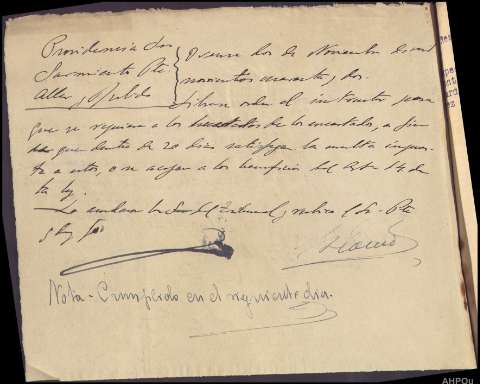 Providencia Sres
Sarmiento Pte.
Aller, y Pulido
Orense dos de Noviembre de mil
novecientos cuarenta y dos.
Librese orden al instructor para
que se requiera a los herederos de los encartados, a fin
de que dentro de 20 dias satisfagan la multa impues-
ta a estos, o se acojan a los beneficios del Art 14 de
la ley.
Lo acordaron los Sres del Tribunal y rubrica el Sr. Pte
y doy fe
Nota - Cumplido en el siguiente dia.
AHPOu